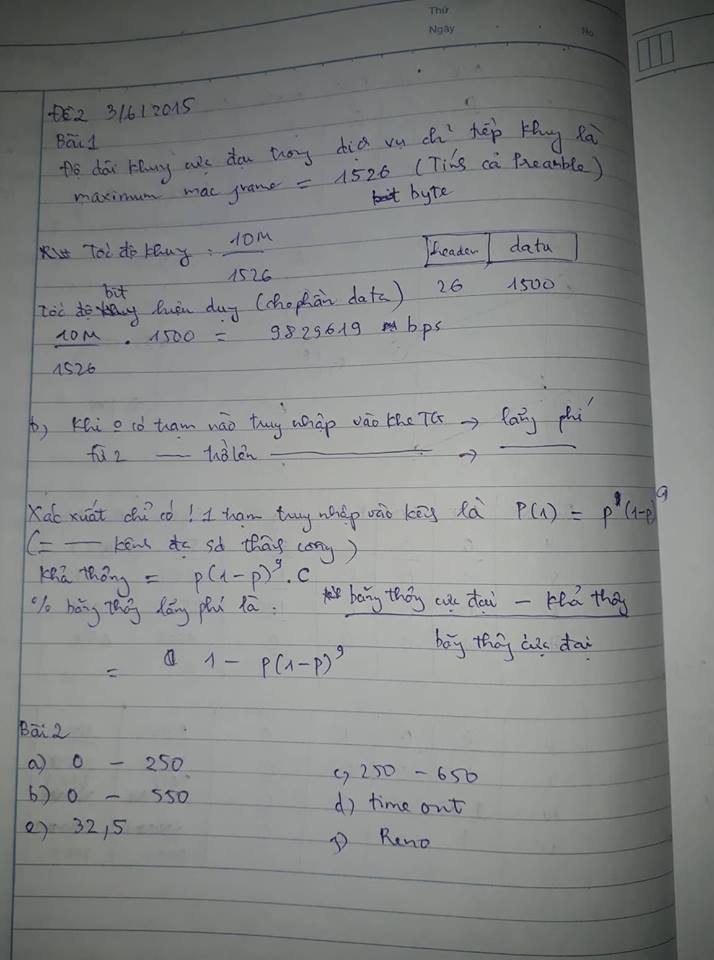 Thứ
Ngày
No.
ĐỀ 2 3/6/2015
Bài 1
Độ dài khung cực đại trong dịch vụ chuyển tiếp khung là
maximum mac frame = 1526 (Tính cả Preamble)
byte
Tốc độ khung = 10M / 1526
header | data
26 1500
Tốc độ bit hiệu dụng (cho phần data)
10M / 1526 . 1500 = 9829619 bps
b) Khi 0 có trạm nào truy nhập vào khe TG → lãng phí
từ 2 — trở lên — →
Xác xuất chỉ có ! 1 trạm truy nhập vào kênh là P(1) = p(1-p)^9
(= — kênh đc sd thành công)
Khả thông = p(1-p)^9 . C
% băng thông lãng phí là : băng thông cực đại - khả thông
băng thông cực đại
= 1 - p(1-p)^9
Bài 2
a) 0 - 250
c) 250 - 650
b) 0 - 550
d) time out
e) 32,5
Reno